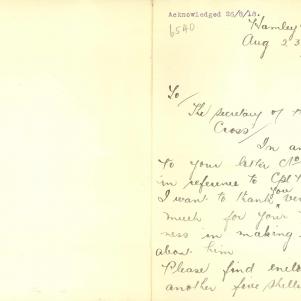 Acknowledged 26/8/18.
6540
Hamley
Aug 23
To
The secretary of
Cross
In an
To your letter No
in reference to Cpl
You
I want to thank ver
much for your
ness in making
about him
Please find enclo
another five shilli